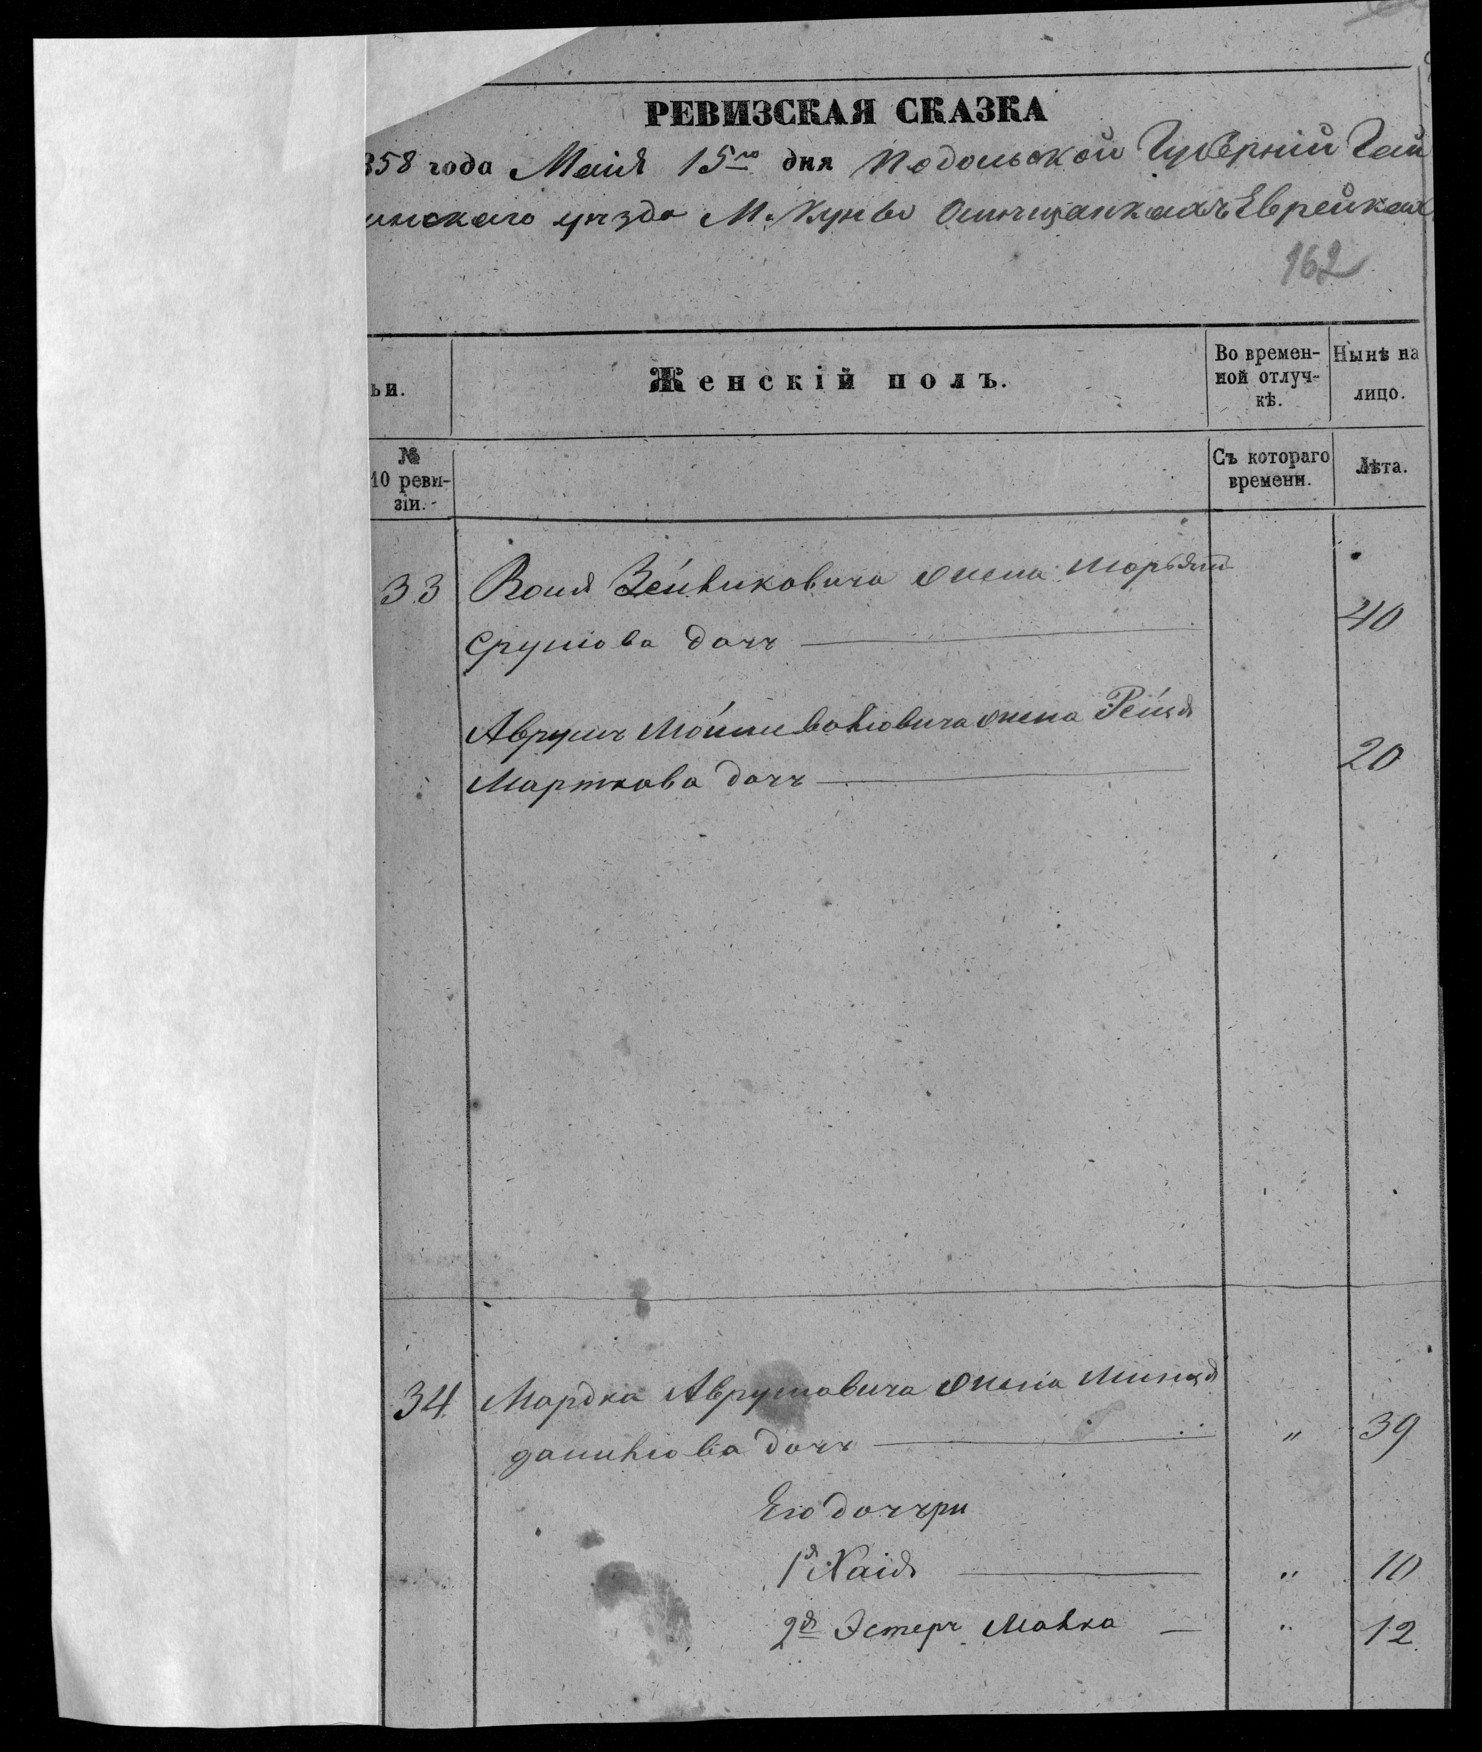 РЕВИЗСКАЯ СКАЗКА
358 года Маія 15го дня Подольской Губерніи Гай
инскаго уезда М. Куньо Еврейкахъ
162
ьи.
Женскій полъ.
Во времен-
ной отлуч-
кѣ.
Нынѣ на
лицо.
№
10 реви-
зіи.
Съ котораго
времени.
Лѣта.
33
Зейвиковича жена Марьям
Срулiова дочь
40
Аврумъ Мошка Вольовича жена Рейзя
Марткова дочь
20
34
Мордка Аврумовича жена Минця
дочь
" 39
Его дочери
1я Хаія " 10
2я Эстеръ Малка " 12